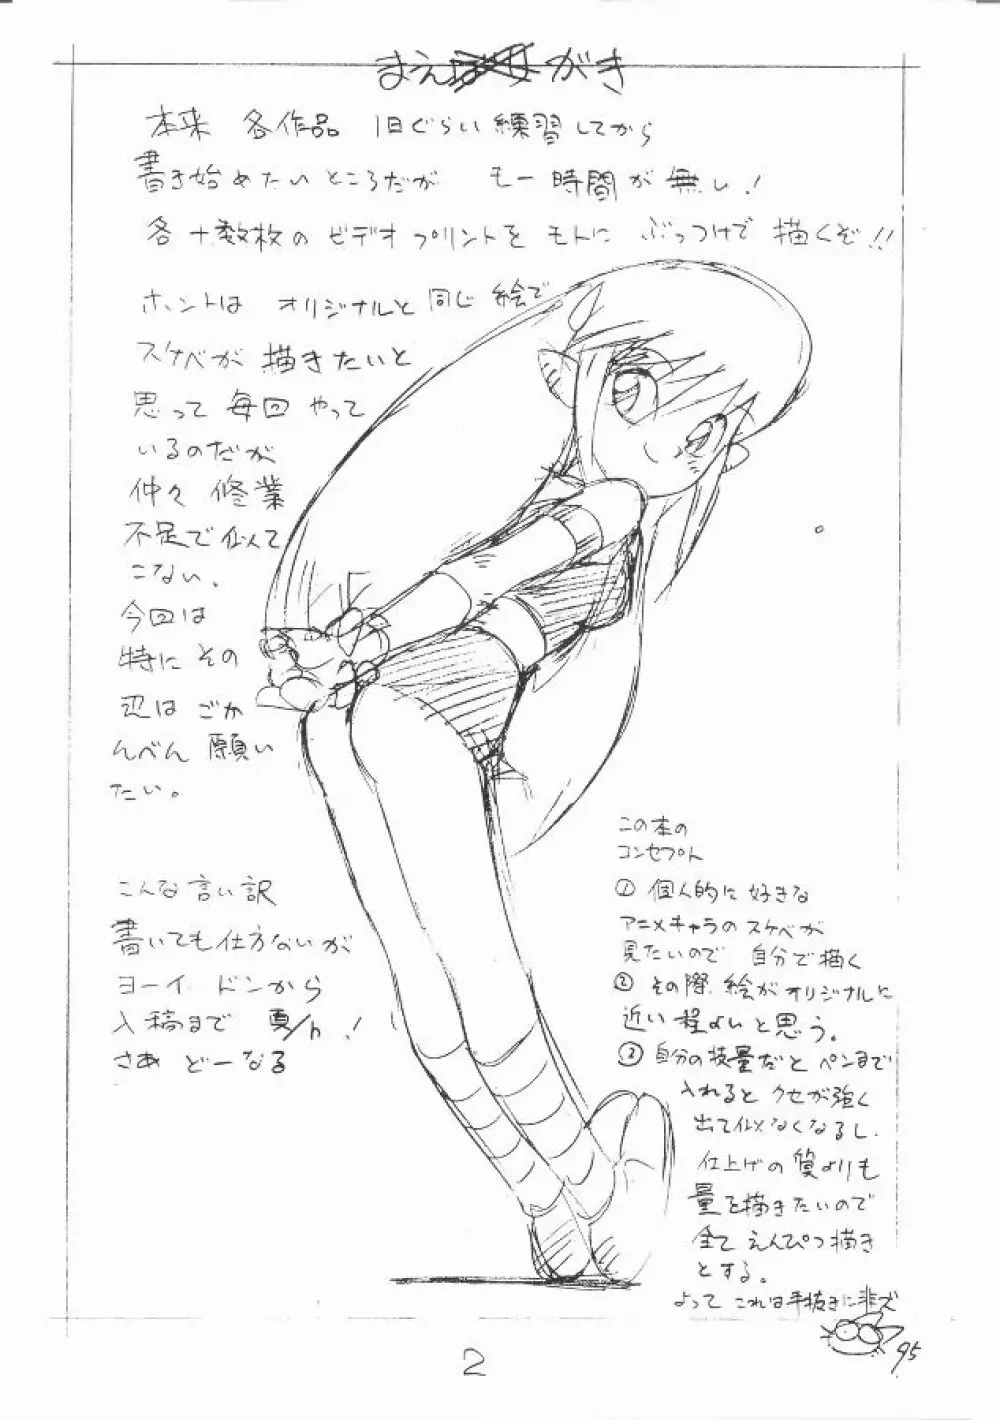 まえがき
本来 各作品 1日ぐらい練習してから
書き始めたいところだが もー時間が無い!
各十数枚のビデオプリントをモトに ぶっつけで描くぞ!!
ホントは オリジナルと同じ絵で
スケベが描きたいと
思って毎回やって
いるのだが
仲々修業
不足で似て
こない。
今回は
特にその
辺はごか
んべん願い
たい。
こんな言い訳
書いても仕方ないが
ヨーイ ドンから
入稿まで
さあ どーなる
この本の
コンセプト
① 個人的に好きな
アニメキャラのスケベが
見たいので 自分で描く
② その際 絵がオリジナルに
近い程よいと思う。
③ 自分の技量だと ペンまで
入れると クセが強く
出て似なくなるし、
仕上げの質よりも
量を描きたいので
全て えんぴつ描き
とする。
よって これは手抜きに非ズ
95
2